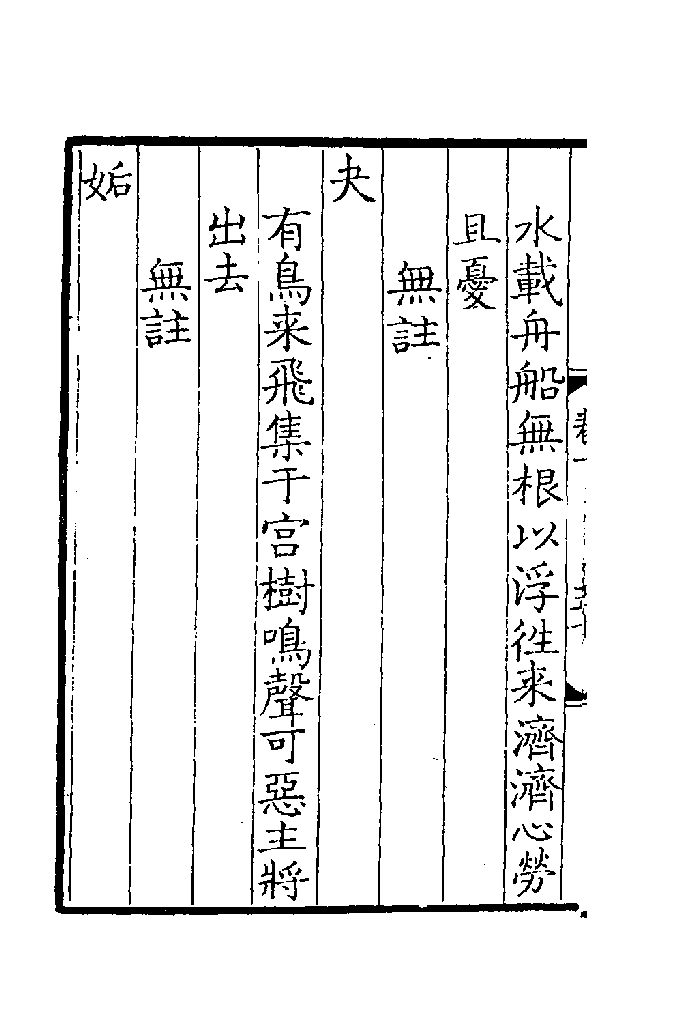 水載舟船無根以浮徃来濟濟心勞
且憂
無註
夬
有鳥来飛集于宫樹鳴聲可惡主將
出去
無註
姤